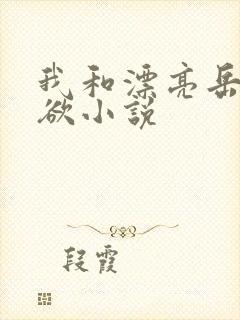 我和漂亮岳
欲小说
段霞